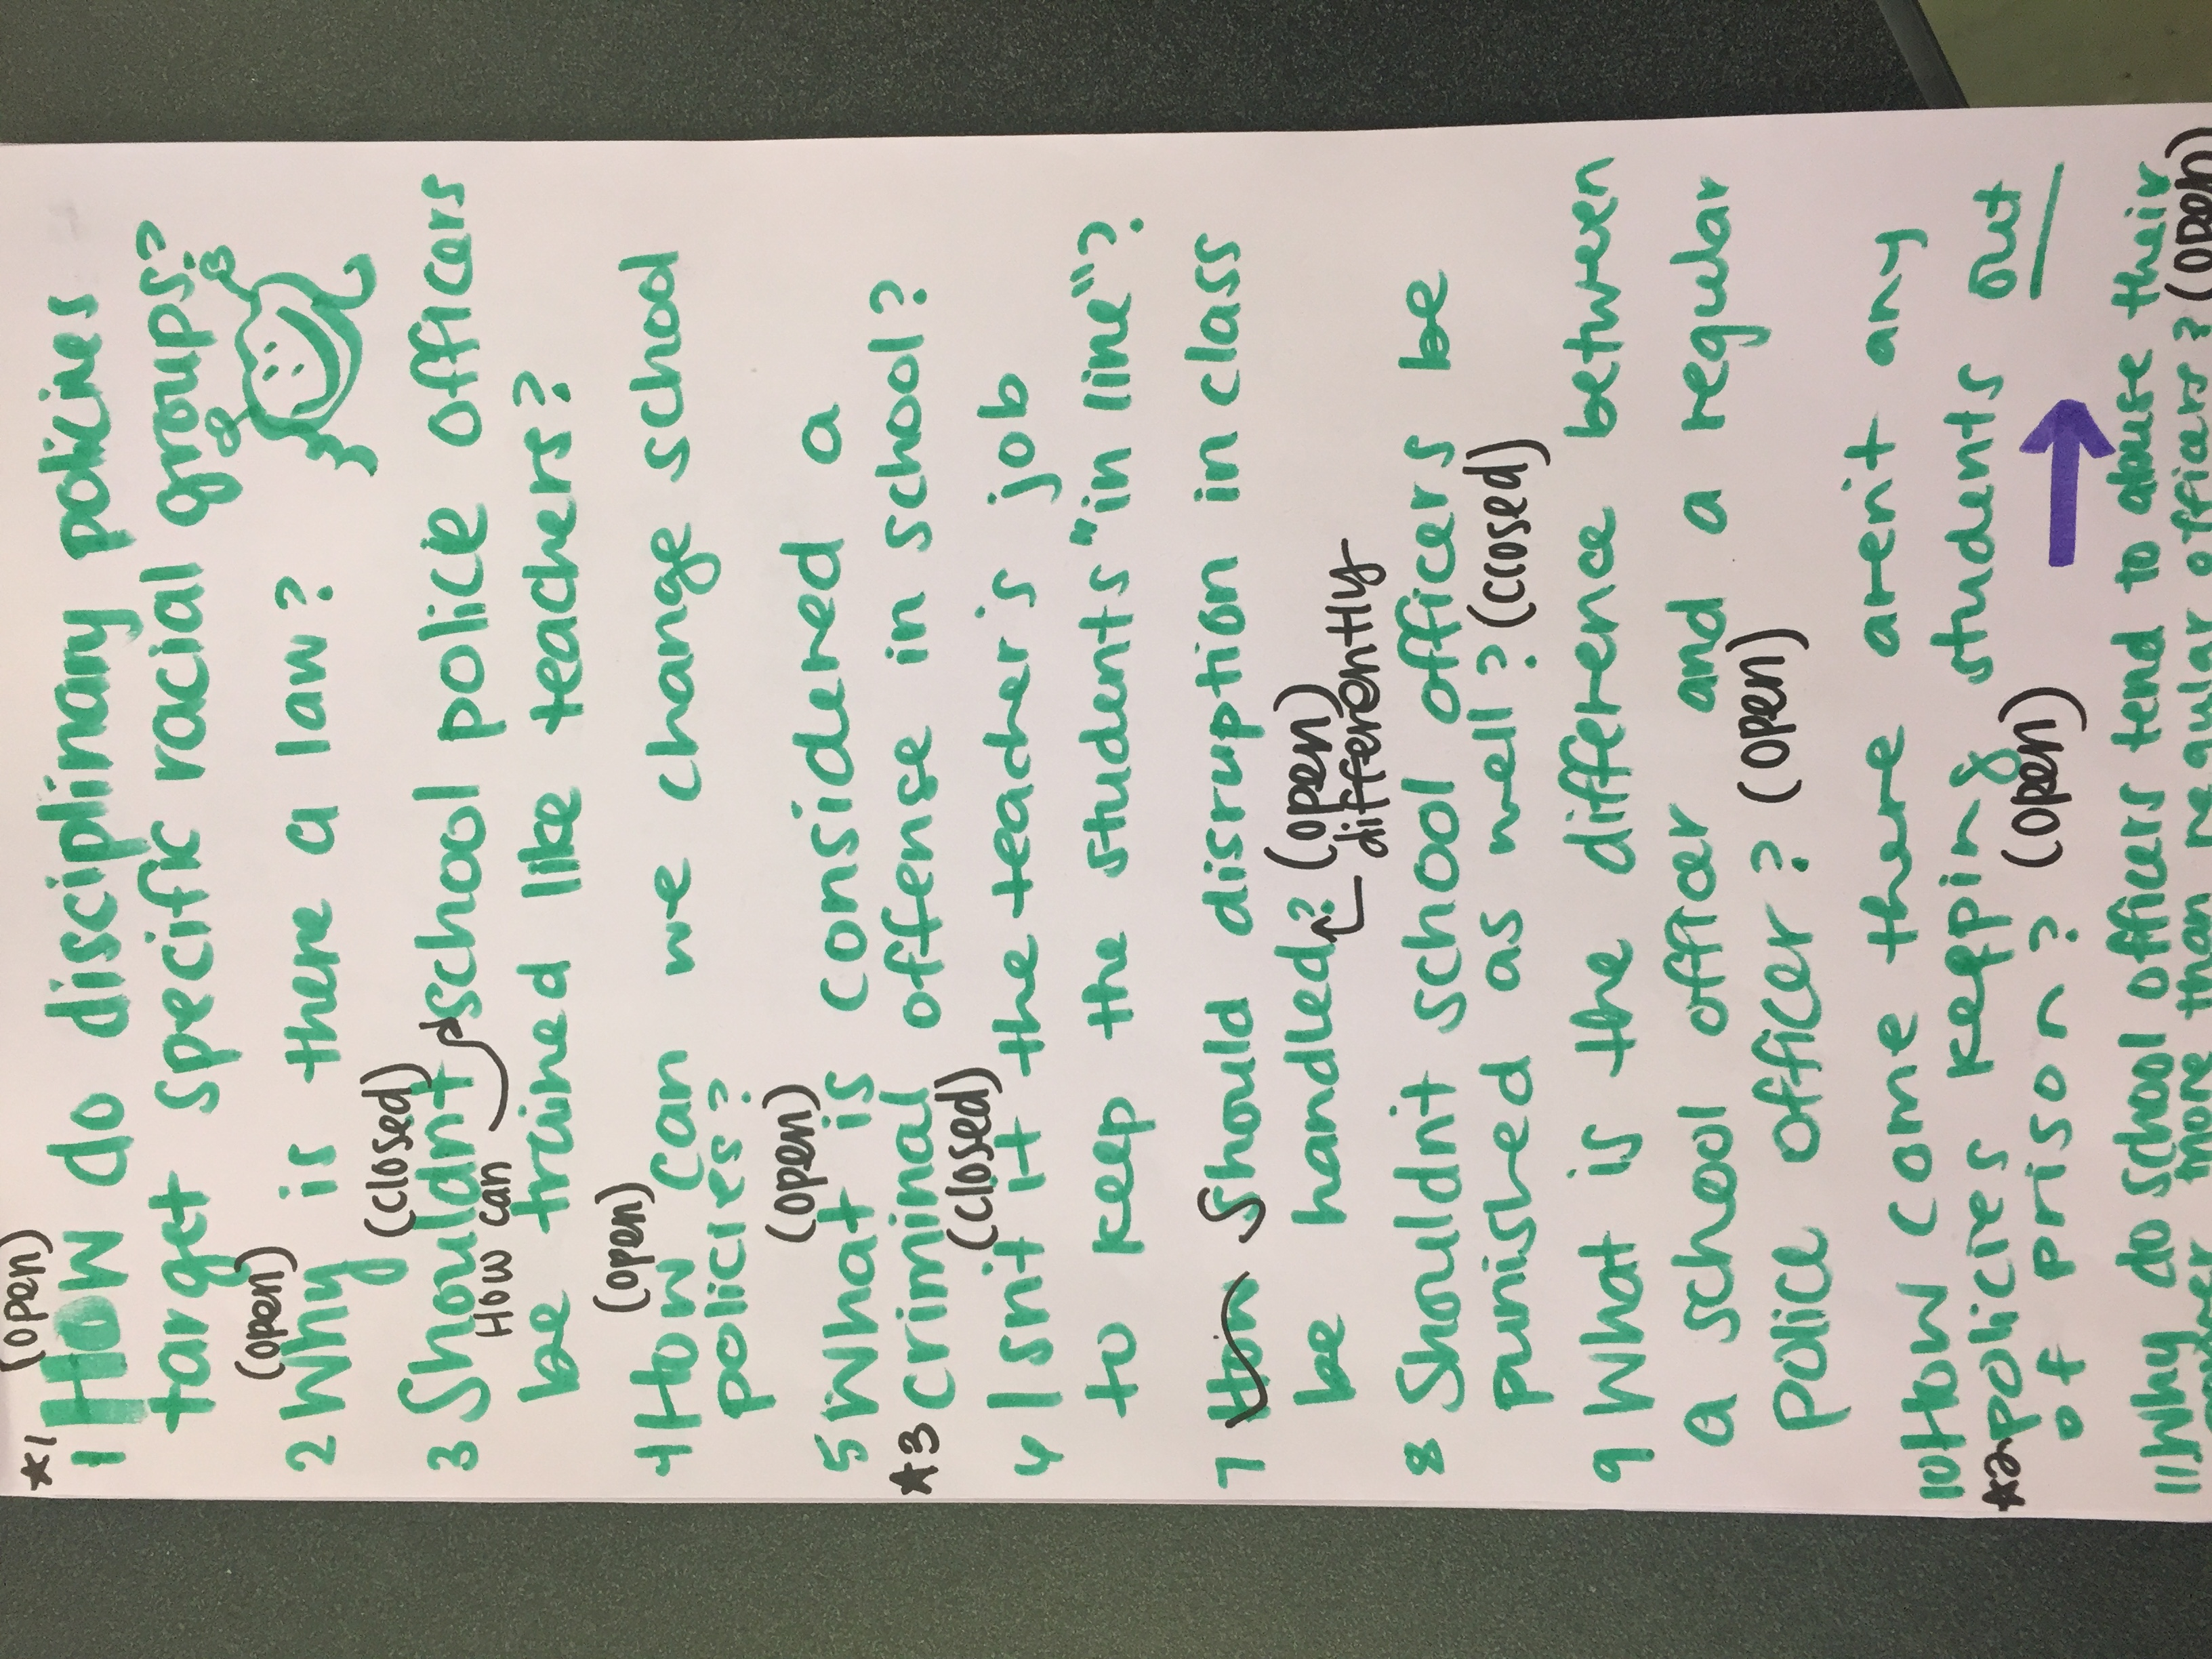 (open)
*1
1 How do disciplinary policies
target specific racial groups?
(open)
2 Why is there a law?
(closed)
3 Shouldnt school police officers
How can
be trained like teachers?
(open)
4 How can we change school
policies?
(open)
5 What is considered a
*3 criminal offense in school?
(closed)
6 Isnt it the teacher's job
to keep the students "in line"?
7 How Should disruption in class
be handled? (open)
differently
8 Shouldnt school officers be
punished as well? (closed)
9 What is the difference between
a school officer and a regular
police officer? (open)
10 How come there arent any
*2 policies keeping students out
of prison? (open)
11 Why do school officers tend to abuse their
power more than regular officers? (open)